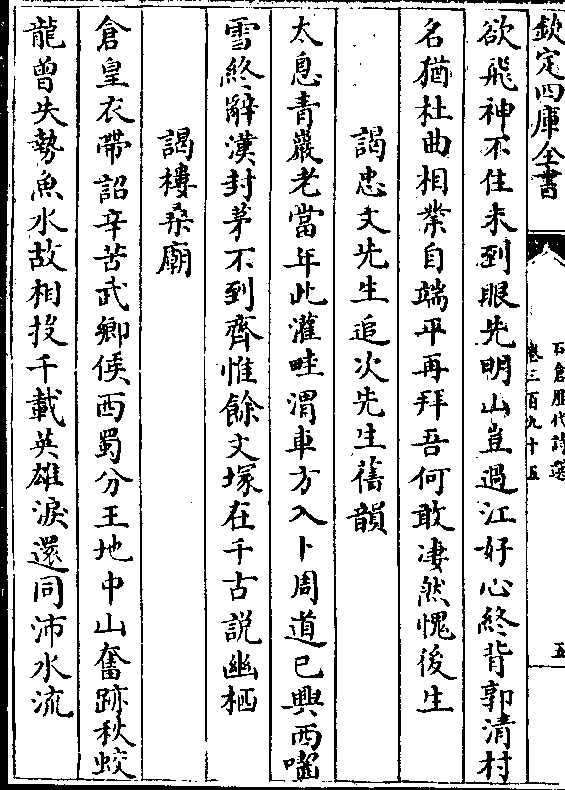 欽定四庫全書
石倉歷代詩選
卷三百九十五
五
欲飛神不住未到眼先明山豈過江好心終背郭清村
名猶杜曲相業自端平再拜吾何敢凄然愧後生
謁忠文先生追次先生舊韻
太息青巖老當年此灌畦渭車方入卜周道已興西嚙
雪終辭漢封茅不到齊惟餘文塚在千古說幽栖
謁樓桑廟
倉皇衣帶詔辛苦武鄉侯西蜀分王地中山奮跡秋蛟
龍曾失勢魚水故相投千載英雄淚還同沛水流